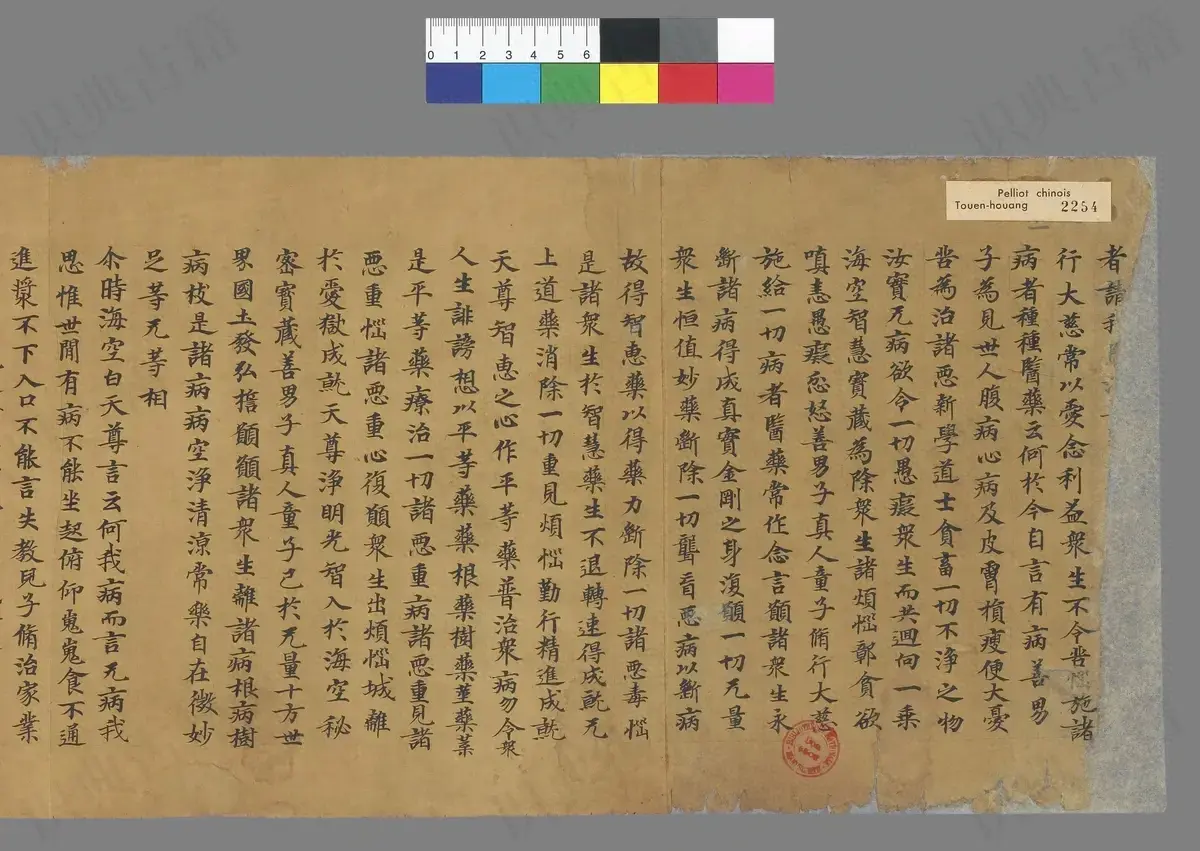 Pelliot chinois
Touen-houang 2254
0 1 2 3 4 5 6
者請
行大慈常以愛念利益衆生不令苦惱施諸
病者種種醫藥云何於今自言有病善男
子為見世人腹病心病及皮膚損瘦便大憂
苦為治諸惡新學道士貪畜一切不淨之物
汝實无病欲令一切愚癡衆生而共迴向一乘
海空智慧寶藏為除衆生諸煩惱鄣貪欲
嗔恚愚癡忿怒善男子真人童子脩行大慈
施給一切病者醫藥常作念言願諸衆生永
斷諸病得成真實金剛之身復願一切无量
衆生恒值妙藥斷除一切聾盲惡病以斷病
故得智惠藥以得藥力斷除一切諸惡毒惱
是諸衆生於智慧藥生不退轉速得成就无
上道藥消除一切重見煩惱勤行精進成就
天尊智惠之心作平等藥普治衆病勿令衆
人生誹謗想以平等藥藥根藥樹藥莖藥葉
是平等藥療治一切諸惡重病諸惡重見諸
惡重惱諸惡重心復願衆生出煩惱城離
於憂獄成就天尊淨明光智入於海空秘
密寶藏善男子真人童子已於无量十方世
界國土發弘擔願願諸衆生離諸病根病樹
病枝是諸病病空淨清涼常樂自在微妙
足等无等相
尒時海空白天尊言云何我病而言无病我
思惟世間有病不能坐起俯仰鬼鬼食不通
進漿不下入口不能言失教兒子脩治家業
识典古籍
识典古籍
识典古籍